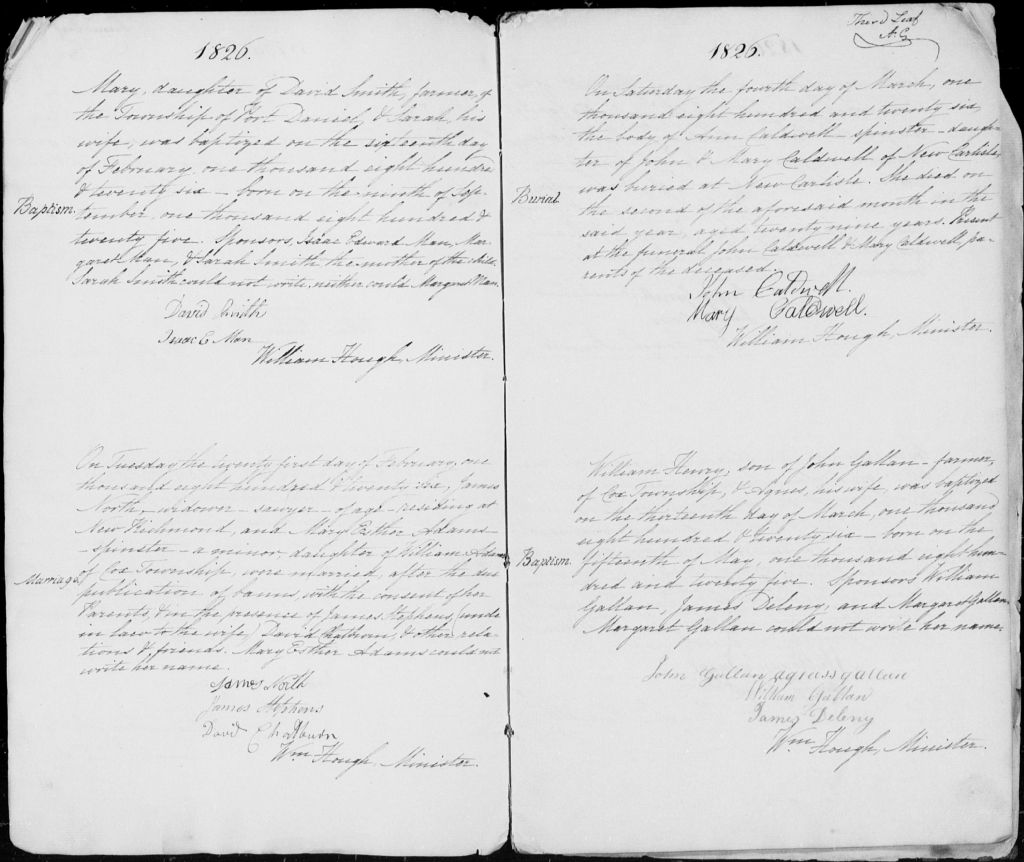 1826.
Mary, daughter of David Smith, farmer, of
the Township of Port Daniel, & Sarah, his
wife, was baptized on the sixteenth day
of February, one thousand eight hundred
& twenty six — born on the ninth of Sep-
Baptism. tember, one thousand eight hundred &
twenty five. Sponsors, Isaac Edward Man, Mar-
garet Man, & Sarah Smith the mother of the child.
Sarah Smith could not write, neither could Margaret Man.
David Smith
Isaac E Man
William Hough, Minister.
On Tuesday the twenty first day of February, one
thousand eight hundred & twenty six, James
North, widower — sawyer — of age — residing at
New Richmond, and Mary Esther Adams
— spinster — a minor daughter of William Adams
Marriage of Cox Township, were married, after the due
publication of banns, with the consent of her
Parents, & in the presence of James Stephens,
in law to the wife, David Chatburn, & other rela-
tions & friends. Mary Esther Adams could not
write her name.
James North
James Stephens
David Chatburn
Wm Hough, Minister.
Third Leaf
1826.
On Saturday the fourth day of March, one
thousand eight hundred and twenty six
the body of Ann Caldwell — spinster — daugh-
ter of John & Mary Caldwell of New Carlisle,
Burial. was buried at New Carlisle. She died on
the second of the aforesaid month in the
said year, aged twenty nine years. Present
at the funeral John Caldwell & Mary Caldwell, pa-
rents of the deceased.
John Caldwell.
Mary Caldwell.
William Hough, Minister.
William Henry, son of John Gallan — farmer,
of Cox Township, & Agnes, his wife, was baptized
on the thirteenth day of March, one thousand
eight hundred & twenty six — born on the
Baptism. fifteenth of May, one thousand eight hun-
dred and twenty five. Sponsors William
Gallan, James Deleny, and Margaret Gallan.
Margaret Gallan could not write her name.
John Gallan agness gallan
William Gallan
James Deleny
Wm Hough, Minister.